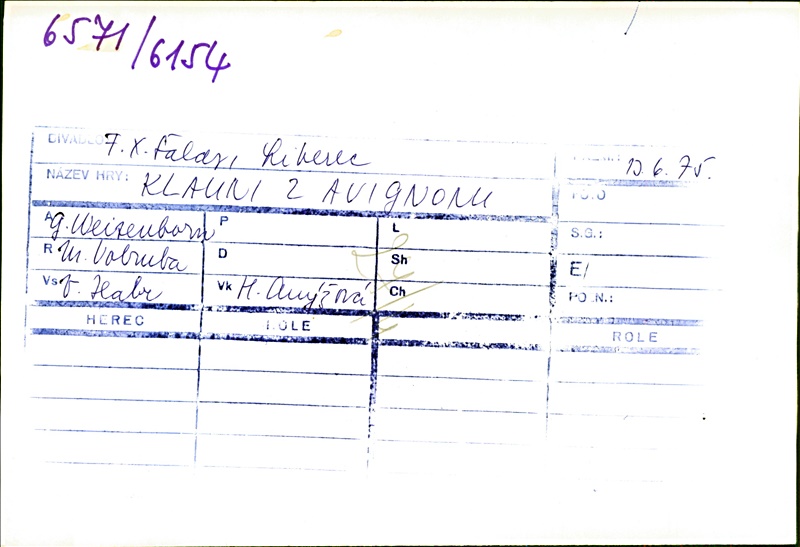 6571/6154
DIVADLO F. X. Šaldy, Liberec
NÁZEV HRY: KLAUNI Z AVIGNONU
13. 6. 75.
A G. Weisenborn P L S.G.:
R M. Vobruba D Sh E/
Vs J. Habr Vk H. Anýžová Ch
HEREC ROLE ROLE